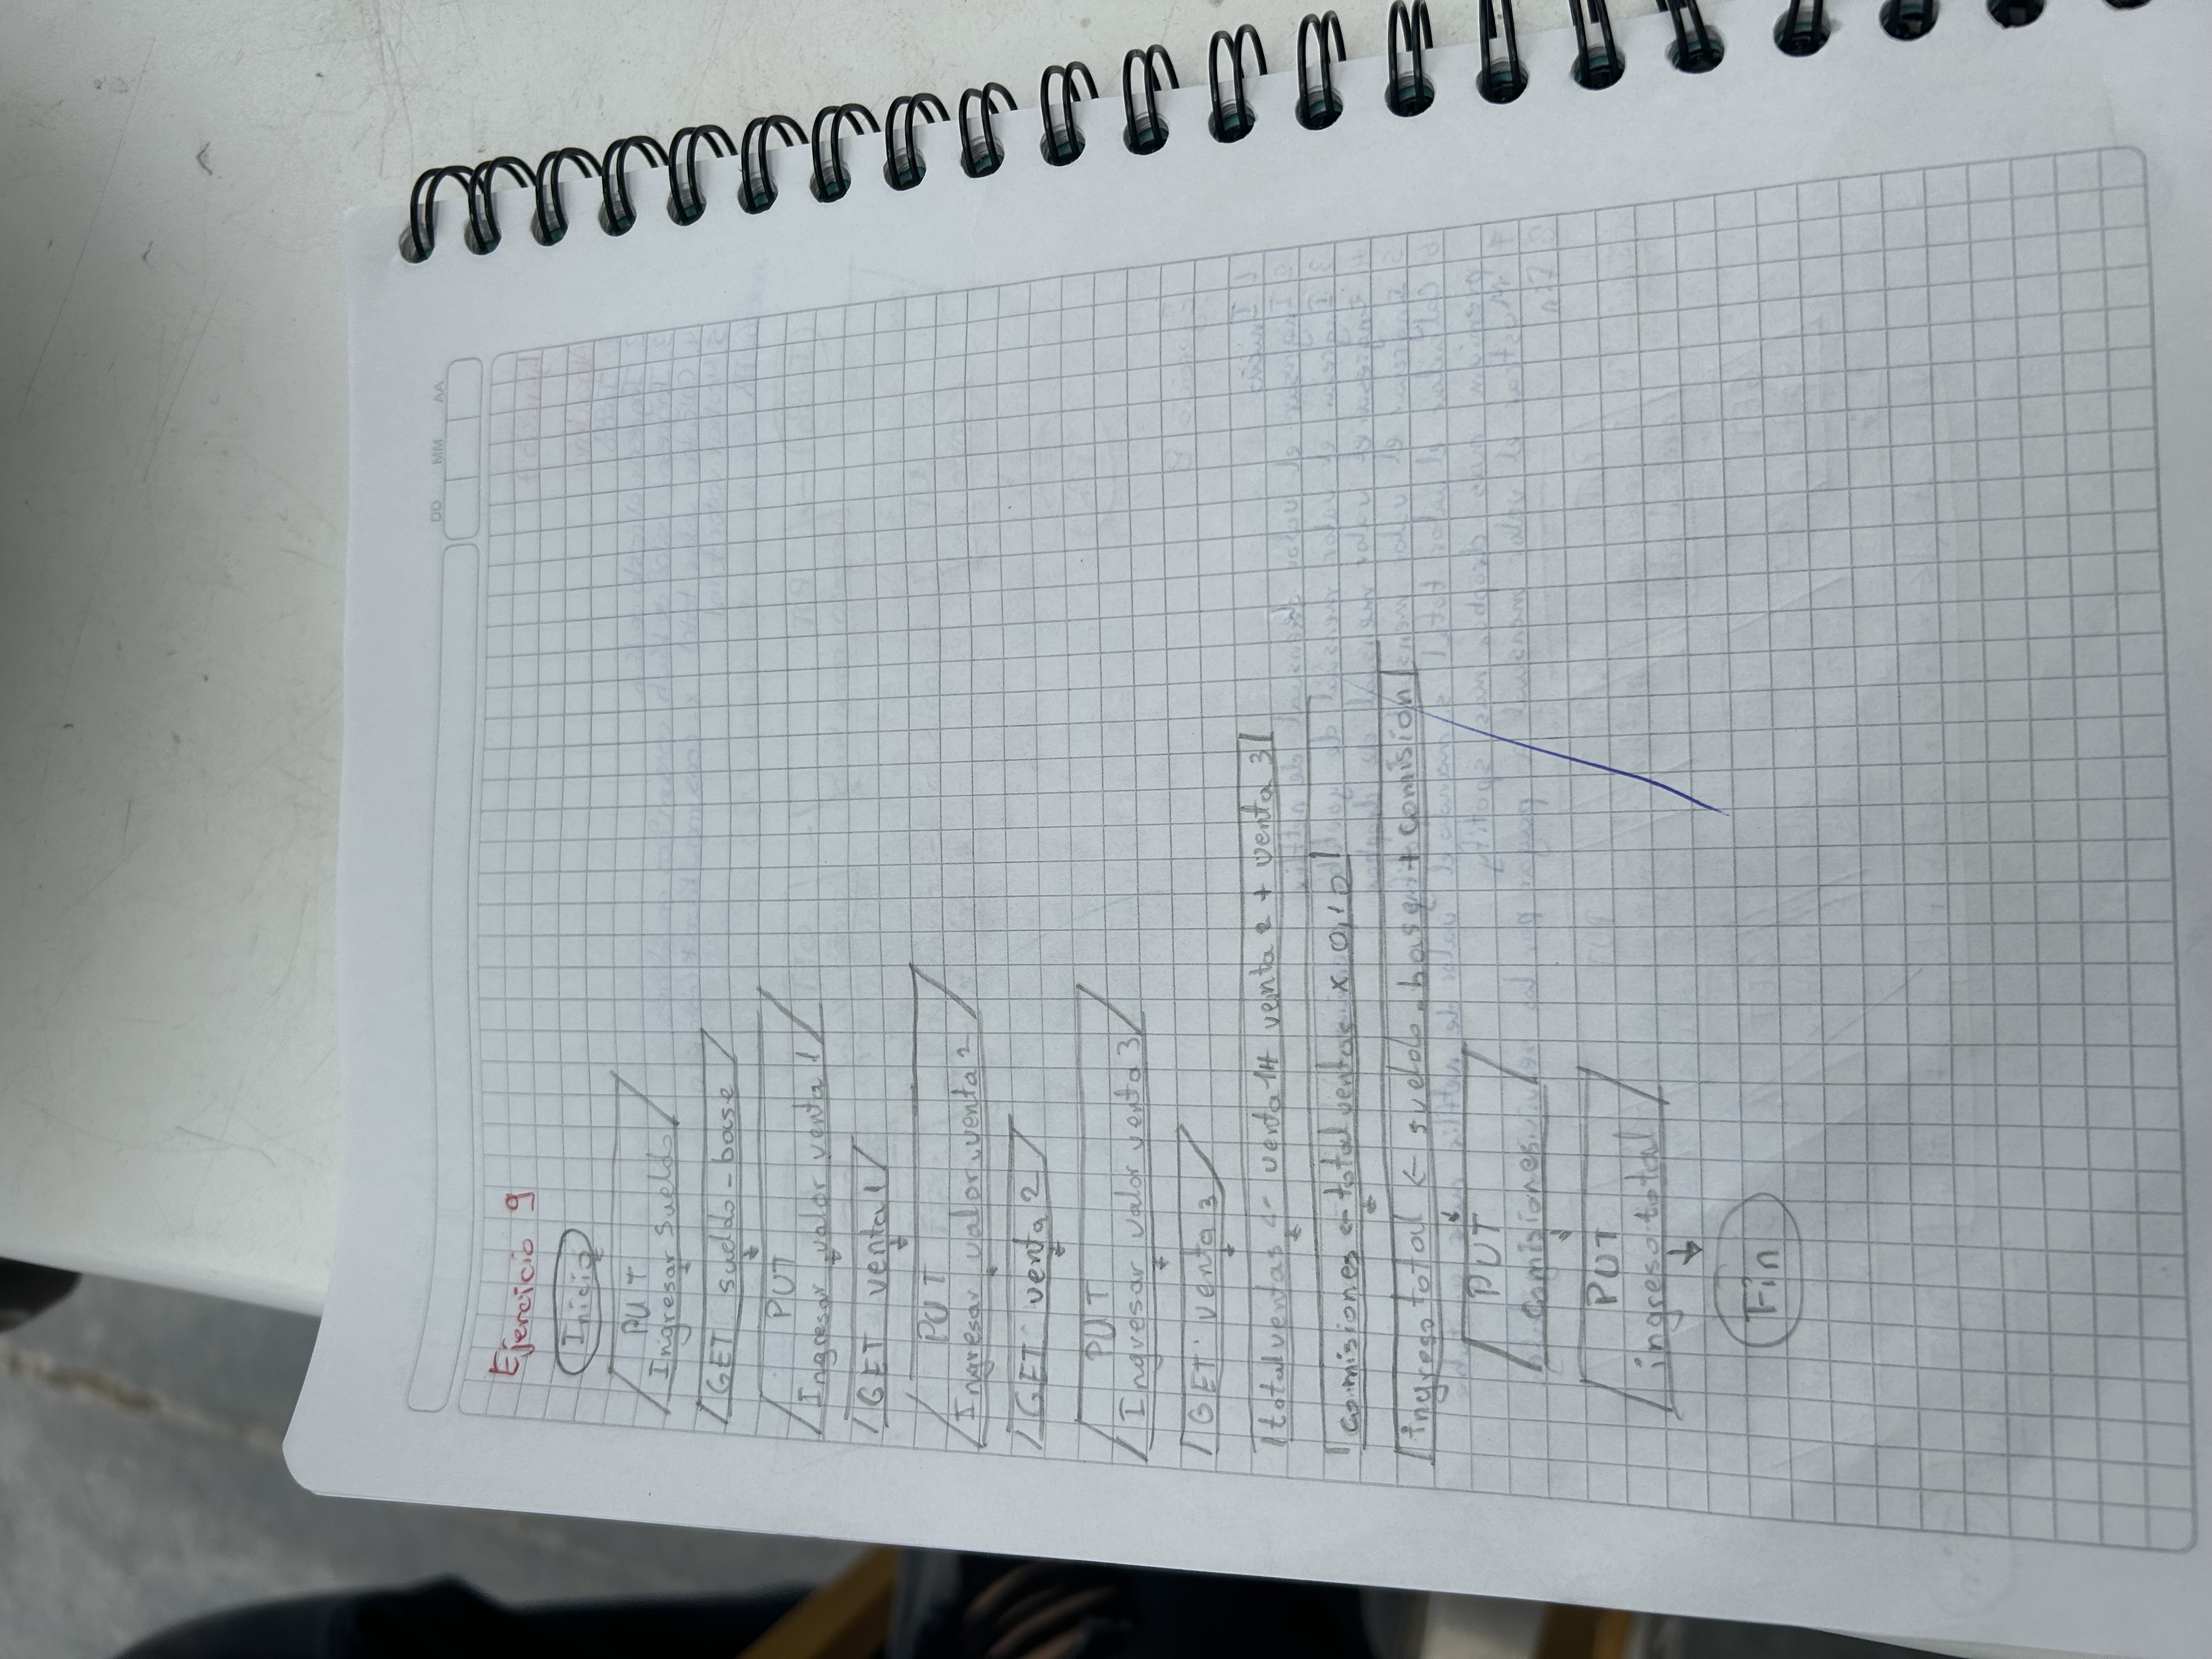 DD MM AA
Ejercicio 9
Inicio
PUT
Ingresar sueldo
GET sueldo-base
PUT
Ingresar valor venta 1
GET venta 1
PUT
Ingresar valor venta 2
GET venta 2
PUT
Ingresar valor venta 3
GET venta 3
total ventas ← venta 1+ venta 2 + venta 3
comisiones ← total ventas x 0,10
ingreso total ← sueldo-base + comisión
PUT
comisiones
PUT
ingreso total
Fin